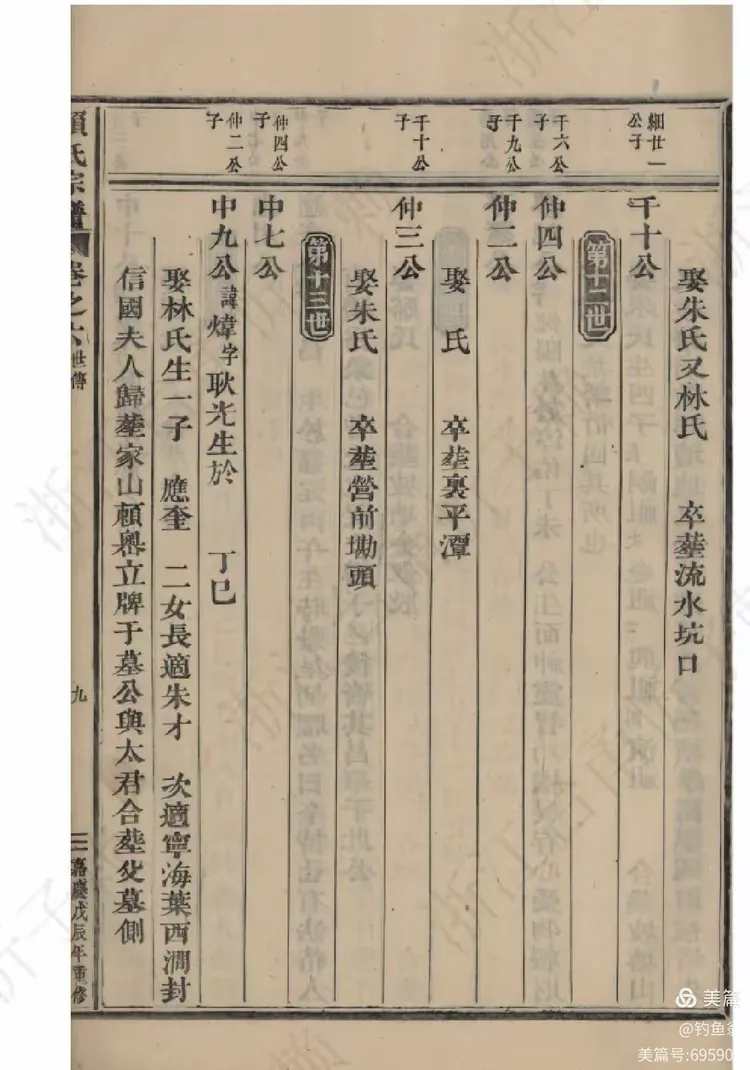 娶朱氏又林氏　卒塟流水坑口
細廿一公子
千十公
第十二世
千六公子
仲四公
千九公子
仲二公
娶　氏　卒塟裏平潭
千十公子
仲三公
娶朱氏　卒塟營前墈頭
第十三世
仲四公子
中七公
仲二公子
中九公諱煒字耿光生於　丁巳
娶林氏生一子　應奎　二女長適朱才　次適寧海葉西澗封
信國夫人歸塟家山賴嶴立牌于墓公與太君合塟父墓側
氏宗譜
卷之六世傳
九
嘉慶戊辰年重修
美篇
@钓鱼
美篇号:69590